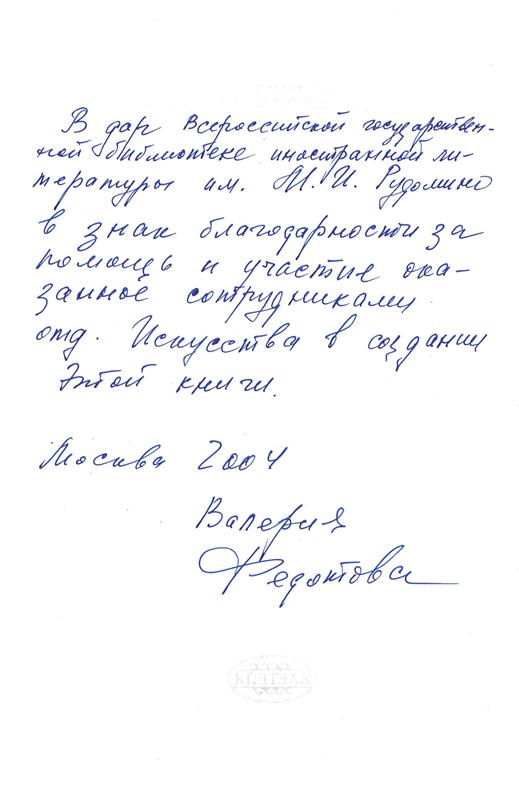 В дар Всероссийской государствен-
ной библиотеке иностранной ли-
тературы им. М. И. Рудомино
в знак благодарности за
помощь и участие ока-
занное сотрудниками
отд. Искусства в создании
этой книги.
Москва 2004
Валерия
Федотова
АЛЕТЕЙЯ